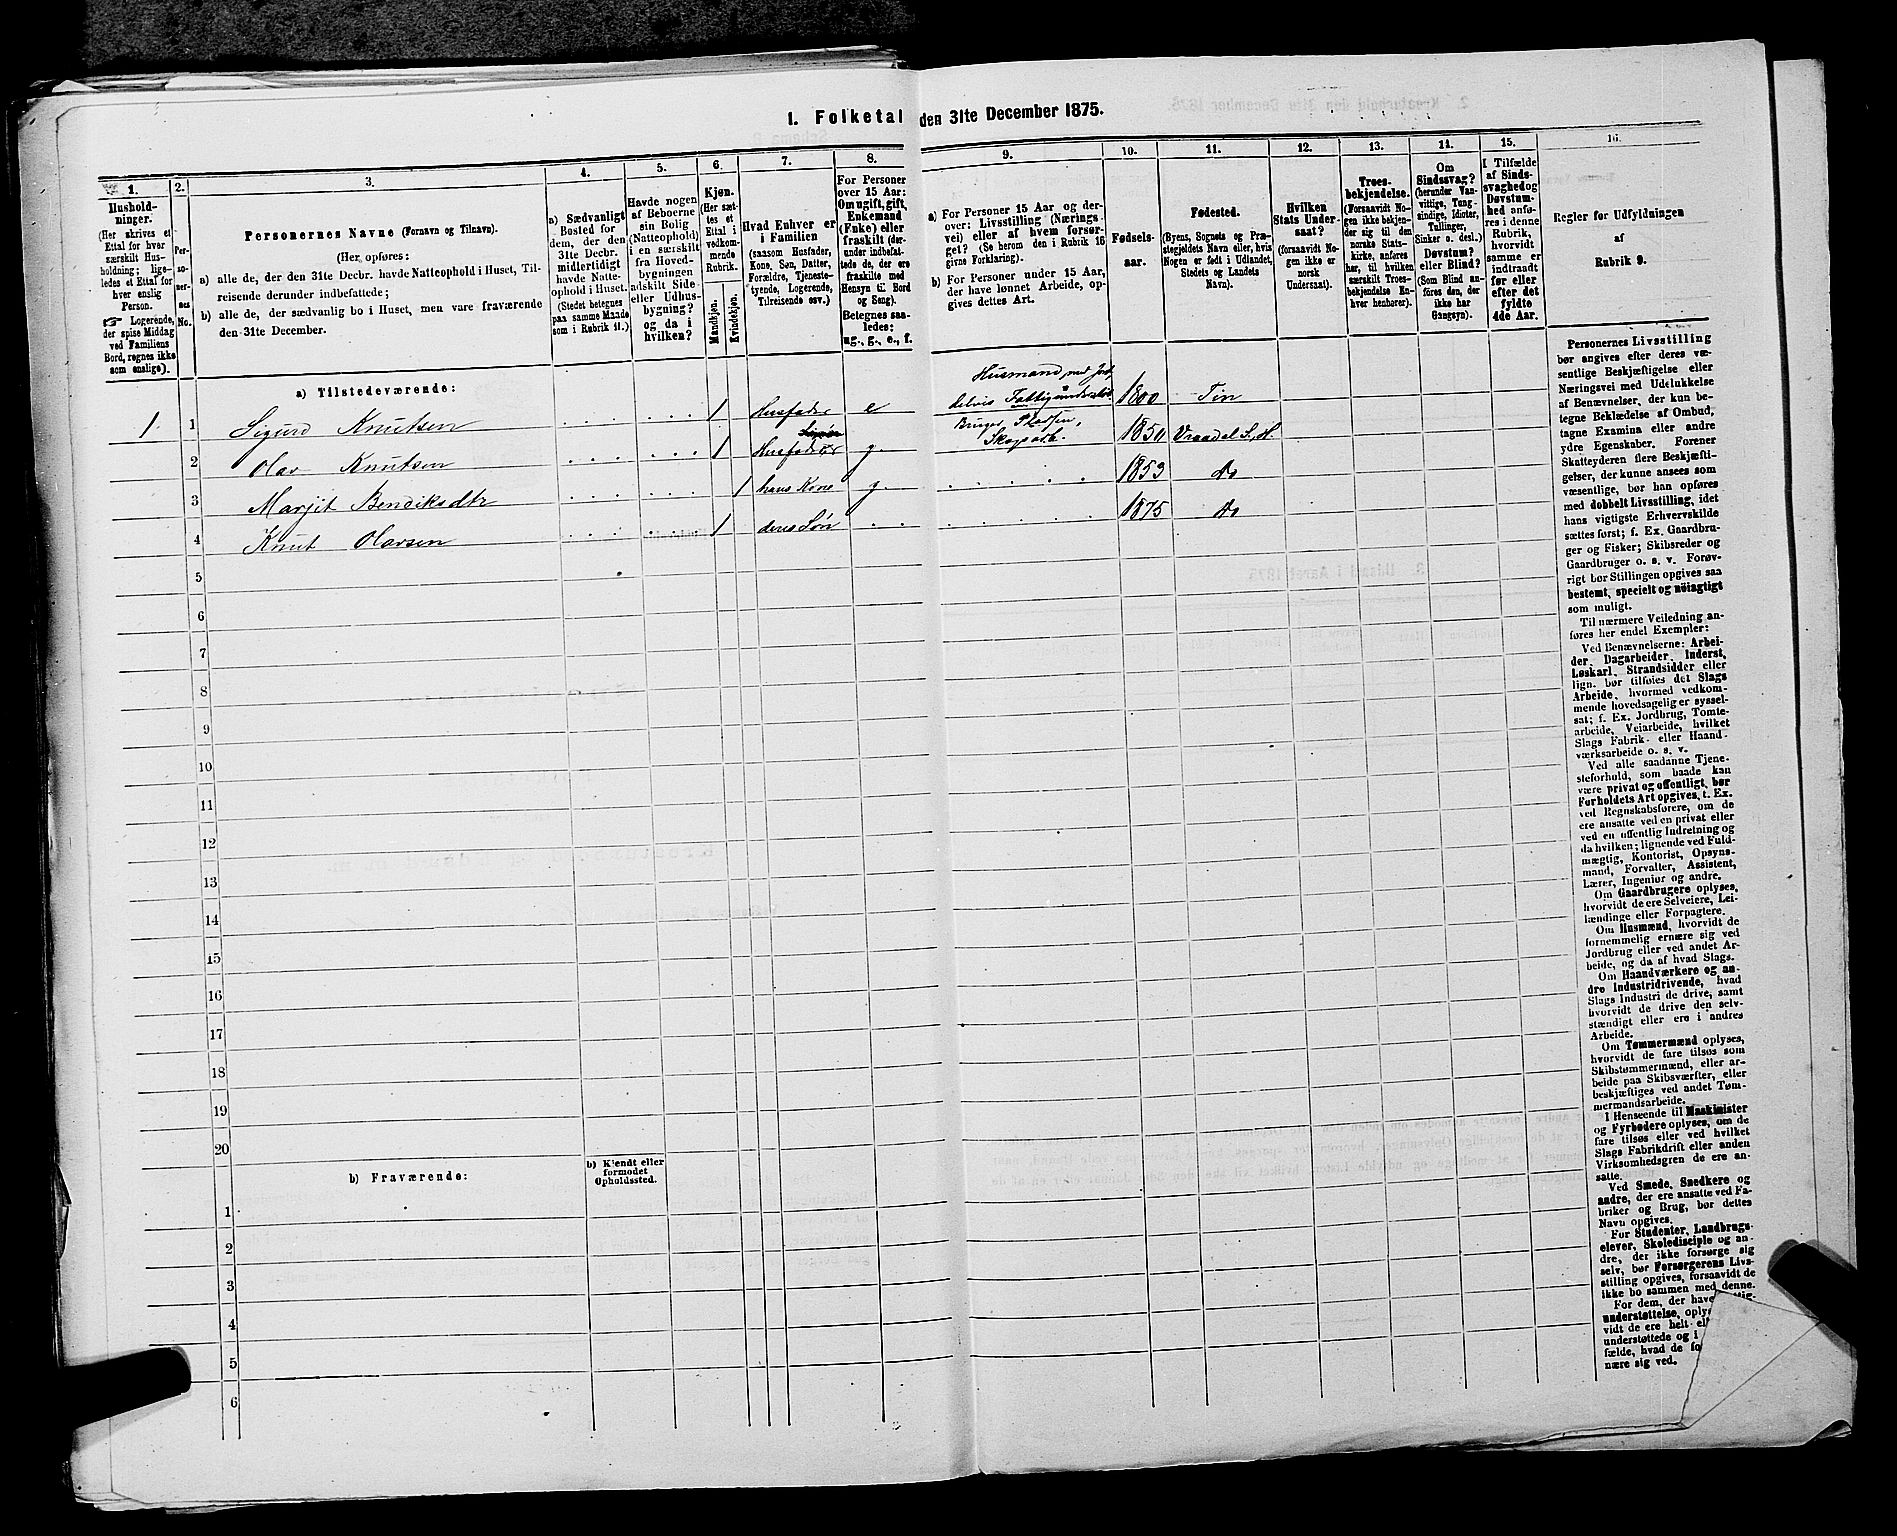 1. Folketal den 31te December 1875.
1.
Hushold-
ninger.
(Her skrives et
Ettal for hver
særskilt Hus-
holdning; lige-
ledes et Ettal for
hver enslig
Person.
☞ Logerende,
der spise Middag
ved Familiens
Bord, regnes ikke
som enslige).
2.
Per-
so-
ner-
nes
No.
3.
Personernes Navne (Fornavn og Tilnavn).
(Her opføres:
a) alle de, der den 31te Decbr. havde Natteophold i Huset, Til-
reisende derunder indbefattede;
b) alle de, der sædvanlig bo i Huset, men vare fraværende
den 31te December.
4.
a) Sædvanligt
Bosted for
dem, der den
31te Decbr.
midlertidigt
havde Natte-
ophold i Huset.
(Stedet betegnes
paa samme Maade
som i Rubrik 11.)
5.
Havde nogen
af Beboerne
sin Bolig
(Natteophold)
i en særskilt
fra Hoved-
bygningen
adskilt Side-
eller Udhus-
bygning?
og da i
hvilken?
6.
Kjøn.
(Her sæt-
tes et
Ettal i
vedkom-
mende
Rubrik.
Mandkjøn.
Kvindekjøn.
7.
Hvad Enhver er
i Familien
(saasom Husfader,
Kone, Søn, Datter,
Forældre, Tjeneste-
tyende, Logerende,
Tilreisende osv.)
8.
For Personer
over 15 Aar:
Om ugift, gift,
Enkemand
(Enke) eller
fraskilt (der-
under indbefat-
tede de, der ere
fraskilte med
Hensyn til Bord
og Seng).
Betegnes saa-
ledes:
ug., g., e., f.
9.
a) For Personer 15 Aar og der-
over: Livsstilling (Nærings-
vei) eller af hvem forsør-
get? (Se herom den i Rubrik 16
givne Forklaring).
b) For Personer under 15 Aar,
der have lønnet Arbeide, op-
gives dettes Art.
10.
Fødsels-
aar.
11.
Fødested.
(Byens, Sognets og Præ-
stegjeldets Navn eller, hvis
Nogen er født i Udlandet,
Stedets og Landets
Navn).
12.
Hvilken
Stats Under-
saat?
(forsaavidt No-
gen ikke er
norsk
Undersaat).
13.
Troes-
bekjendelse.
(Forsaavidt No-
gen ikke bekjen-
der sig til den
norske Stats-
kirke, anføres
her, til hvilken
særskilt Troes-
bekjendelse En-
hver henhører).
14.
Om
Sindssvag?
(herunder Van-
vittige, Tung-
sindige, Idioter,
Tullinger,
Sinker o. desl.)
Døvstum?
eller Blind?
(Som Blind an-
føres den, der
ikke har
Gangsyn).
15.
I Tilfælde
af Sinds-
svaghed og
Døvstum-
hed anfø-
res i denne
Rubrik,
hvorvidt
samme er
indtraadt
før eller
efter det
fyldte
4de Aar.
16.
Regler før Udfyldningen
af
Rubrik 9.
a) Tilstedeværende:
1 1 Sigurd Knutsen 1 Husfader e Husmand med Jord, delvis 1800 Tin
2 Olav Knutsen 1 Husfader g. Bruger Pladsen, 1850 Vraadal S. H.
3 Margit Bendiksdtr 1 hans Kone g. 1853 do
4 Knut Olavsen 1 deres Søn 1875 do
5
6
7
8
9
10
11
12
13
14
15
16
17
18
19
20
b) Fraværende:
b) Kjendt eller
formodet
Opholdssted.
1
2
3
4
5
6
Personernes Livsstilling
bør angives efter deres væ-
sentlige Beskjæftigelse eller
Næringsvei med Udelukkelse
af Benævnelser, der kun be-
tegne Beklædelse af Ombud,
tagne Examina eller andre
ydre Egenskaber. Forener
Skatteyderen flere Beskjæfti-
gelser, der kunne ansees som
væsentlige, bør han opføres
med dobbelt Livsstilling, idet
hans vigtigste Erhvervskilde
sættes først; f. Ex. Gaardbru-
ger og Fisker; Skibsreder og
Gaardbruger o. s. v. Forøv-
rigt bør Stillingen opgives saa
bestemt, specielt og nöiagtigt
som muligt.
Til nærmere Veiledning an-
føres her endel Exempler:
Ved Benævnelserne: Arbei-
der, Dagarbeider, Inderst,
Løskarl, Strandsidder eller
lign. bør tilføies det Slags
Arbeide, hvormed vedkom-
mende hovedsagelig er syssel-
sat; f. Ex. Jordbrug, Tomte-
arbeide, Veiarbeide, hvilket
Slags Fabrik- eller Haand-
værksarbeide o. s. v.
Ved alle saadanne Tjene-
steforhold, som baade kan
være privat og offentligt, bør
Forholdets Art opgives, t. Ex.
ved Regnskabsførere, om de
ere ansatte ved en privat eller
ved en offentlig Indretning og
da hvilken; lignende ved Fuld-
mægtig, Kontorist, Opsyns-
mand, Forvalter, Assistent,
Lærer, Ingeniør og andre.
Om Gaardbrugere oplyses,
hvorvidt de ere Selveiere, Lei-
lændinge eller Forpagtere.
Om Husmænd, hvorvidt de
fornemmelig ernære sig ved
Jordbrug eller ved andet Ar-
beide, og da af hvad Slags.
Om Haandværkere og an-
dre Industridrivende, hvad
Slags Industri de drive, samt
hvorvidt de drive den selv-
stændigt eller ere i andres
Arbeide.
Om Tømmermænd oplyses,
hvorvidt de fare tilsøs som
Skibstømmermænd, eller ar-
beide paa Skibsværfter, eller
beskjæftiges ved andet Tøm-
mermandsarbeide.
I Henseende til Maskinister
og Fyrbødere oplyses, om de
fare tilsøs eller ved hvilket
Slags Fabrikdrift eller anden
Virksomhedsgren de ere an-
satte.
Ved Smede, Snedkere og
andre, der ere ansatte ved Fa-
briker og Brug, bør dettes
Navn opgives.
For Studenter, Landbrugs-
elever, Skoledisciple og an-
dre, der ikke forsørge sig
selv, bør Forsørgerens Livs-
stilling opgives, forsaavidt de
ikke bo sammen med denne.
For dem, der have
understøttelse,
vidt de ere helt
understøttede og i
fælde, hvad de
nære sig ved.